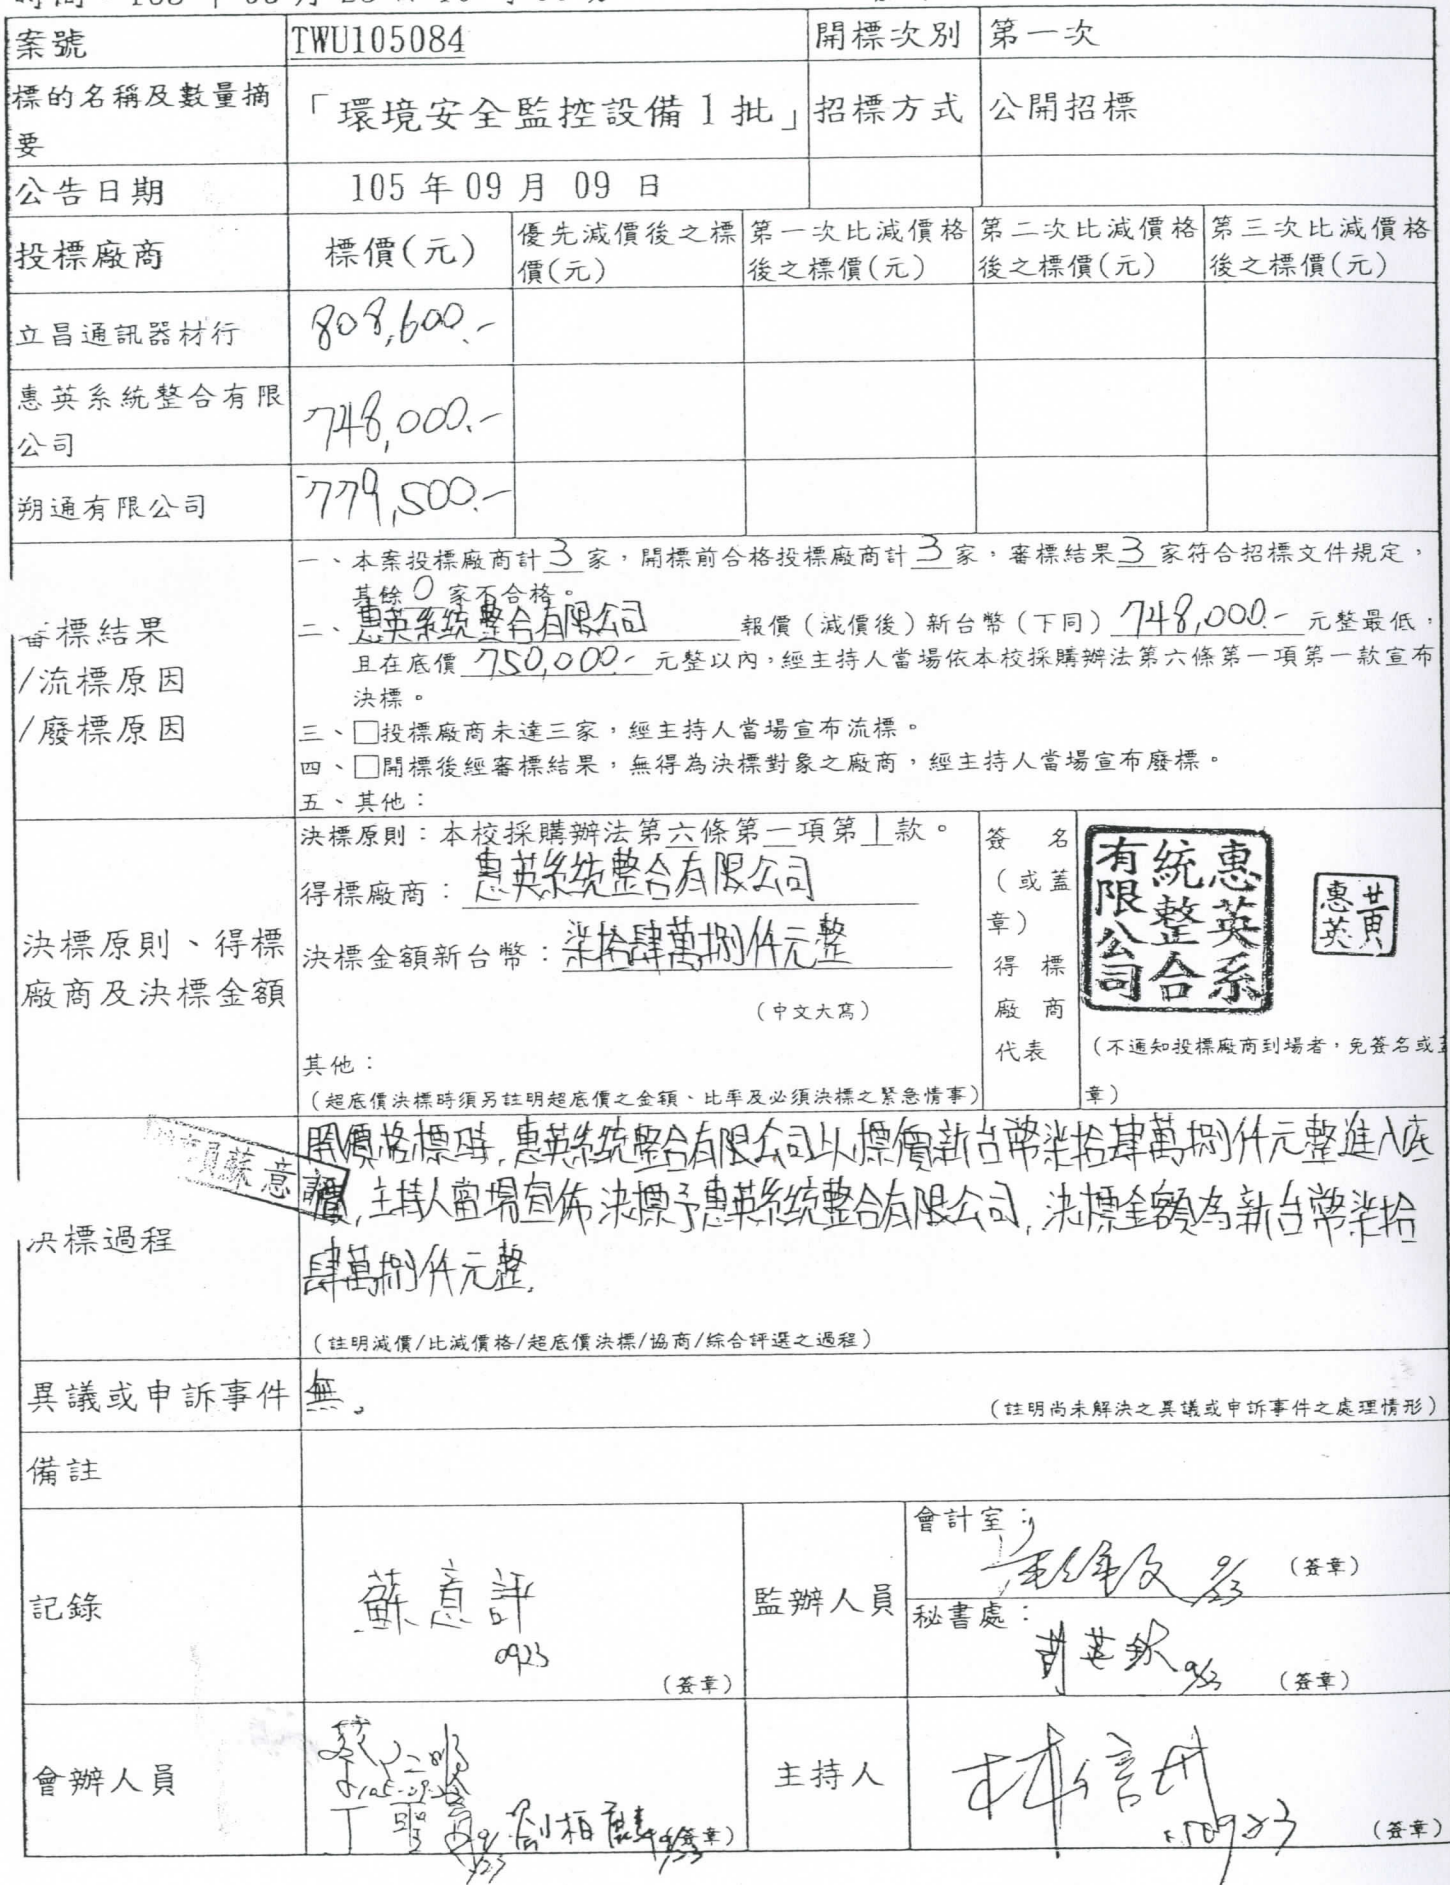 案號 TWU105084 開標次別 第一次
標的名稱及數量摘要 「環境安全監控設備1批」 招標方式 公開招標
公告日期 105年09月09日
投標廠商 標價(元) 優先減價後之標價(元) 第一次比減價格後之標價(元) 第二次比減價格後之標價(元) 第三次比減價格後之標價(元)
立昌通訊器材行 808,600.-
惠英系統整合有限公司 748,000.-
朔通有限公司 779,500.-
審標結果
/流標原因
/廢標原因
一、本案投標廠商計3家，開標前合格投標廠商計3家，審標結果3家符合招標文件規定，
其餘0家不合格。
二、惠英系統整合有限公司 報價（減價後）新台幣（下同）748,000.-元整最低，
且在底價750,000.-元整以內，經主持人當場依本校採購辦法第六條第一項第一款宣布
決標。
三、□投標廠商未達三家，經主持人當場宣布流標。
四、□開標後經審標結果，無得為決標對象之廠商，經主持人當場宣布廢標。
五、其他：
決標原則、得標
廠商及決標金額
決標原則：本校採購辦法第六條第一項第1款。
得標廠商：惠英系統整合有限公司
決標金額新台幣：柒拾肆萬捌仟元整
（中文大寫）
其他：
（超底價決標時須另註明超底價之金額、比率及必須決標之緊急情事）
簽名
（或蓋
章）
得標
廠商
代表
惠英系
統整合
有限公司
黃
惠英
（不通知投標廠商到場者，免簽名或蓋
章）
決標過程
開價格標時,惠英系統整合有限公司以標價新台幣柒拾肆萬捌仟元整進入底
價,主持人當場宣佈決標予惠英系統整合有限公司,決標金額為新台幣柒拾
肆萬捌仟元整.
蘇意評
（註明減價/比減價格/超底價決標/協商/綜合評選之過程）
異議或申訴事件 無。 （註明尚未解決之異議或申訴事件之處理情形）
備註
記錄 蘇意評
0923
（簽章）
監辦人員
會計室：
9/23 （簽章）
秘書處：
9/23 （簽章）
會辦人員
劉柏麟 （簽章）
主持人 林信州
（簽章）